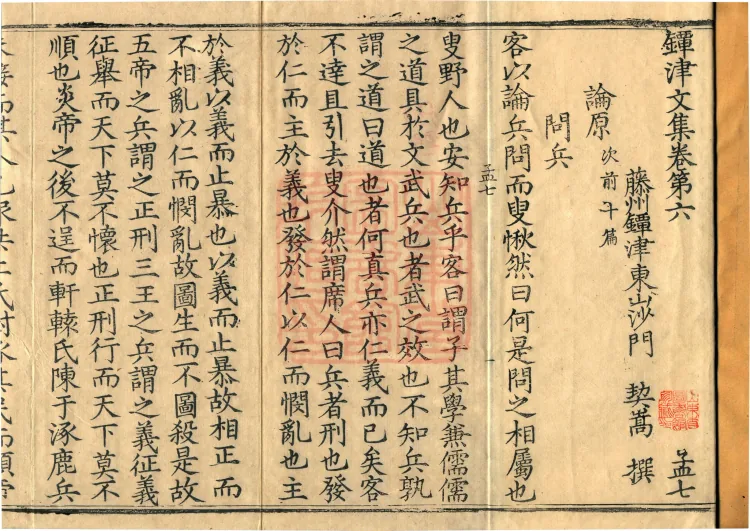 鐔津文集卷第六
孟七
藤州鐔津東山沙門 契嵩 撰
論原 次前十篇
問兵
客以論兵問而叟愀然曰何是問之相屬也
孟七
叟野人也安知兵乎客曰謂子其學兼儒儒
之道具於文武兵也者武之效也不知兵孰
謂之道曰道也者何真兵亦仁義而已矣客
不達且引去叟介然謂席人曰兵者刑也發
於仁而主於義也發於仁以仁而憫亂也主
於義以義而止暴也以義而止暴故相正而
不相亂以仁而憫亂故圖生而不圖殺是故
五帝之兵謂之正刑三王之兵謂之義征義
征舉而天下莫不懷也正刑行而天下莫不
順也炎帝之後不逞而軒轅氏陳于涿鹿兵